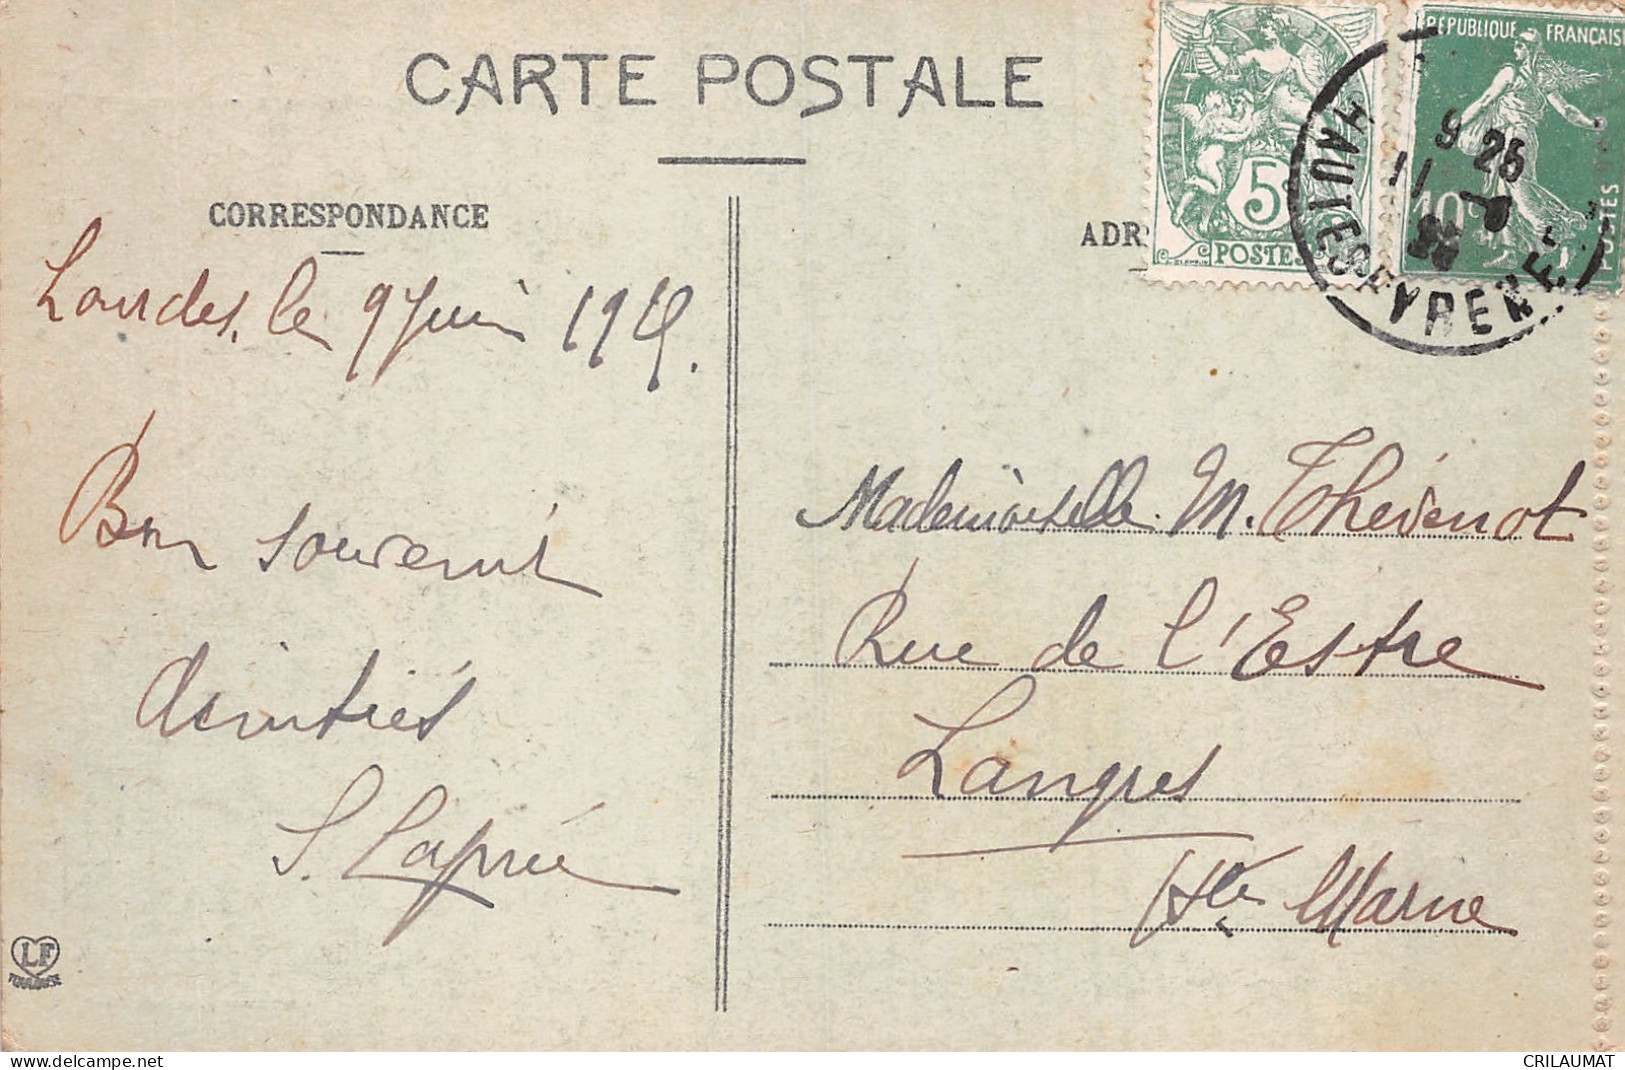 CARTE POSTALE
CORRESPONDANCE
ADR
RÉPUBLIQUE FRANÇAISE
10c
POSTES
5c
POSTES
9 25
11
HAUTES PYRENEES
Lourdes, le 9 Juin
Bon souvenir
Amitiés
Mademoiselle M. Thévenot
Rue de l'Estre
Langres
Hte Marne
LF
TOULOUSE
delcampe.net
CRILAUMAT